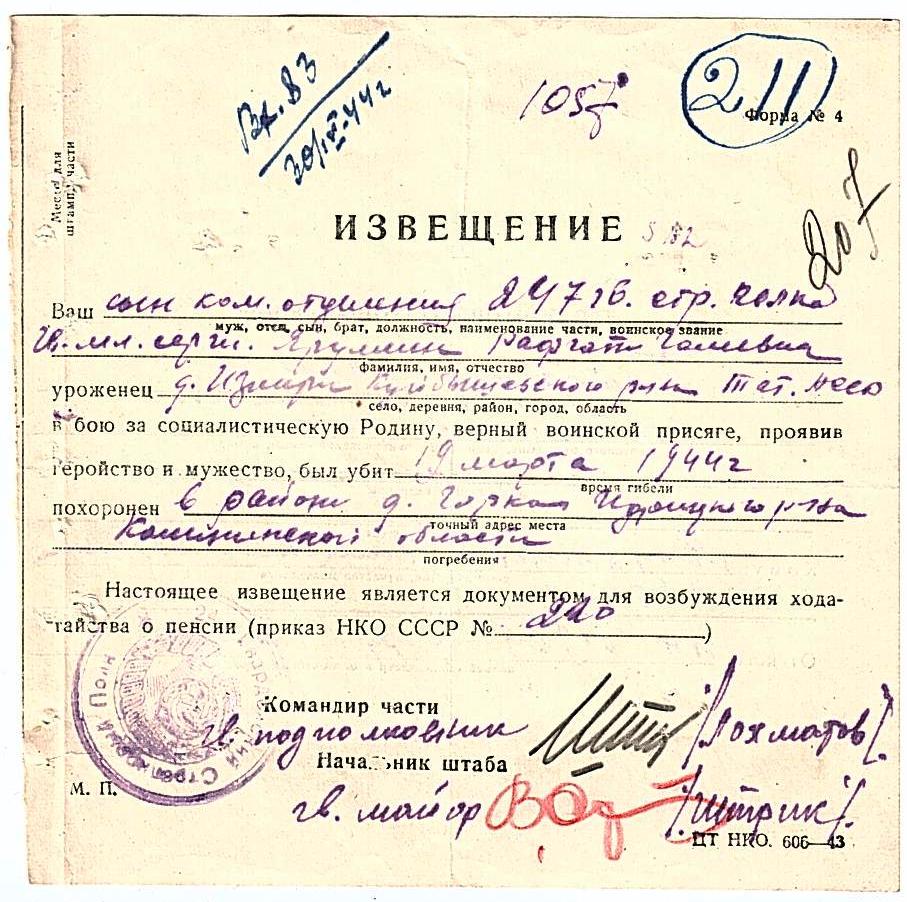 Вх. 83
30/IV-44 г
1057
211
Форма № 4
207
Место для
штампа части
ИЗВЕЩЕНИЕ
Ваш сын ком. отделения 247 гв. стр. полка
муж, отец, сын, брат, должность, наименование части, воинское звание
Гв. мл. серж.
фамилия, имя, отчество
уроженец д. Измери Куйбышевского р-на Тат.
село, деревня, район, город, область
в бою за социалистическую Родину, верный воинской присяге, проявив
геройство и мужество, был убит 19 марта 1944 г
время гибели
похоронен в районе д. Идрицкого р-на
точный адрес места
Калининской области
погребения
Настоящее извещение является документом для возбуждения хода-
тайства о пенсии (приказ НКО СССР № 220)
Командир части
гв. подполковник /Лохматов/.
Начальник штаба
М. П.
гв. майор /Штрик/.
ЦТ НКО. 606—43